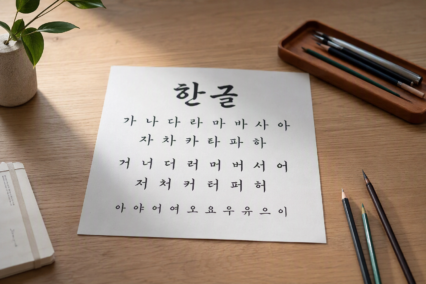 한글
가 나 다 라 마 바 사 아
자 차 카 타 파 하
거 너 더 러 머 버 서 어
저 처 커 터 퍼 허
아 야 어 여 오 요 우 유 으 이